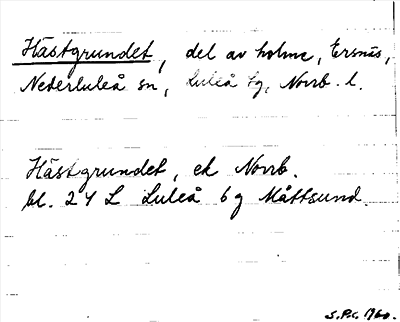 Hästgrundet, del av holme, Ersnäs,
Nederluleå sn, Luleå tg, Norrb. l.
Hästgrundet, ek Norrb.
bl. 24 L Luleå 6 g Måttsund.
S.P.C. 1960.